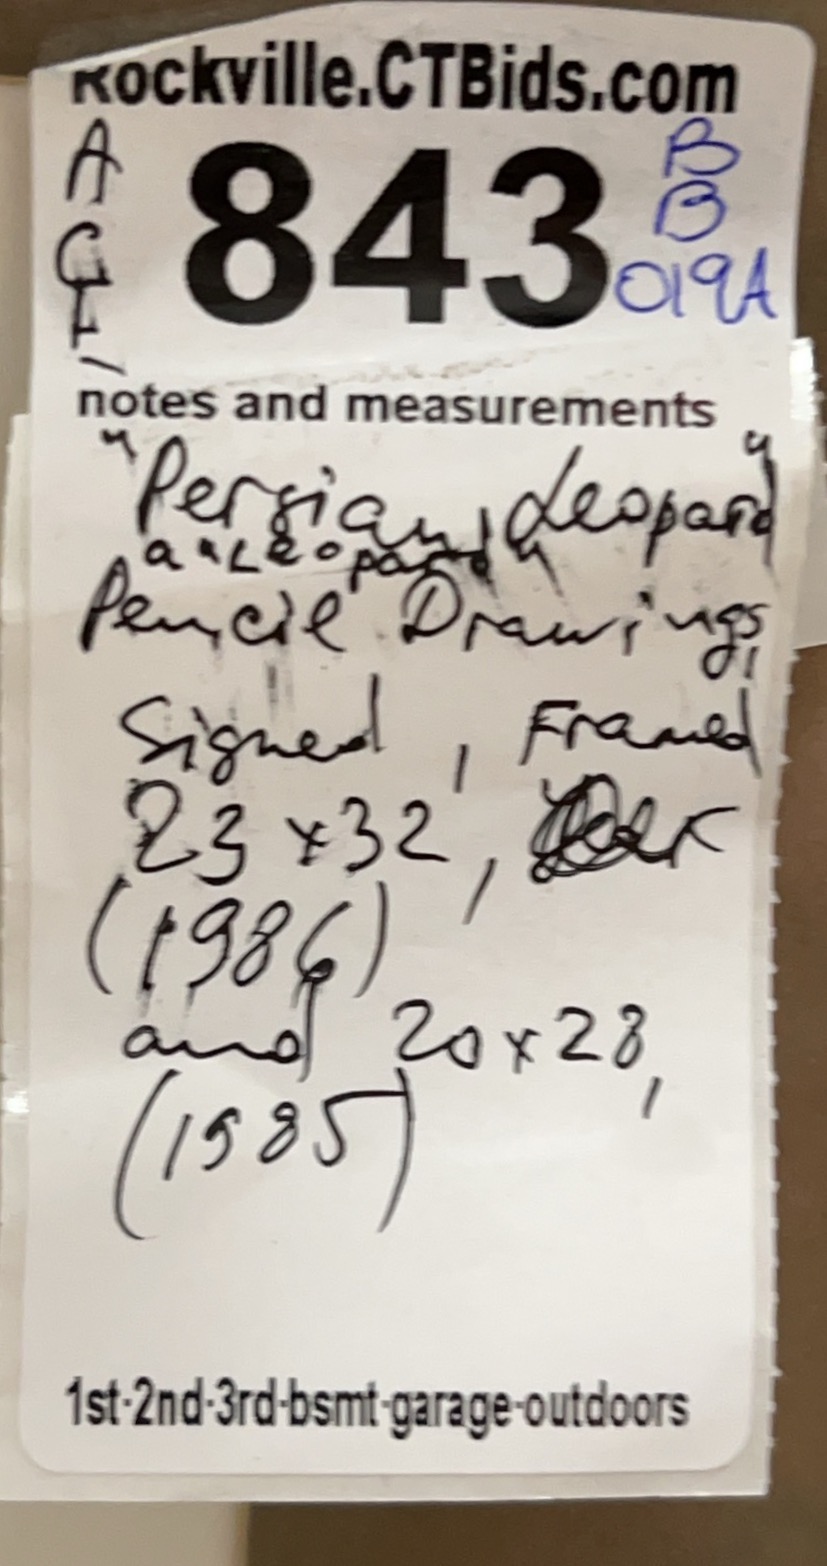 Rockville.CTBids.com
A
843
B
B
019A
notes and measurements
"Persian Leopard"
a "Leopard"
Pencil Drawings,
Signed, Framed
23 x 32,
(1986)
and 20 x 28,
(1985)
1st-2nd-3rd-bsmt-garage-outdoors